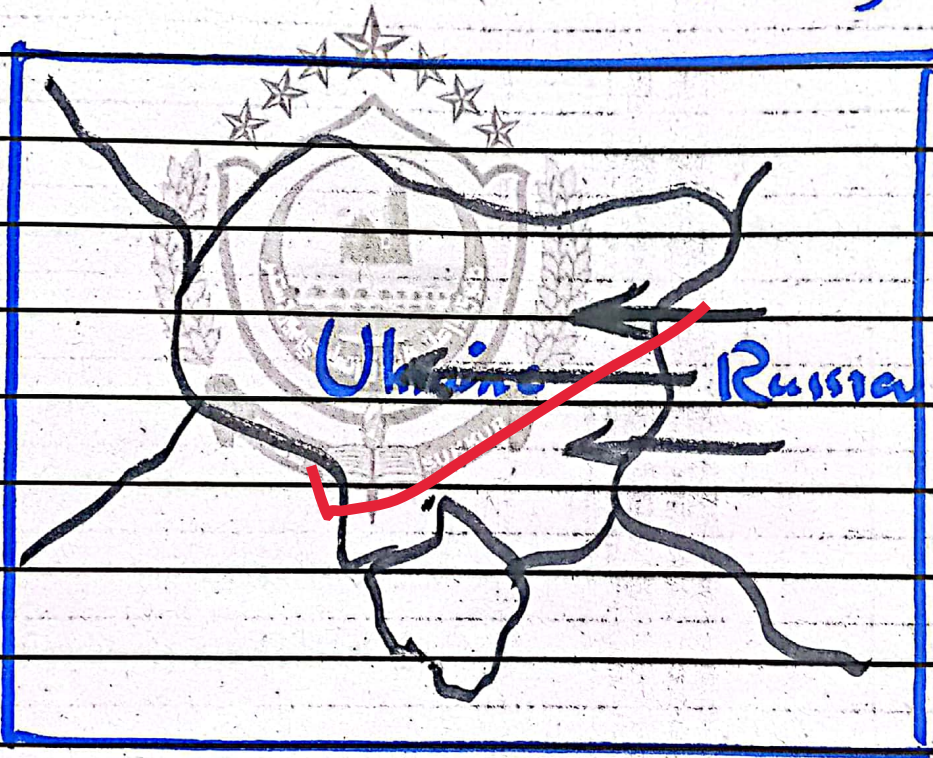 Ukraine
Russia